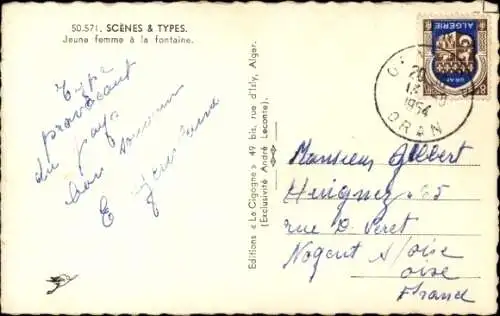 50.571. SCÈNES & TYPES.
Jeune femme à la fontaine.
Type
provocant
du pays
bon souvenir
E
Editions « La Cigogne » 49 bis, rue d'Isly, Alger.
(Exclusivité André Leconte).
ALGÉRIE
ORAN
1954
ORAN
Monsieur Gilbert
65
rue D.
Nogent s/oise
oise
France